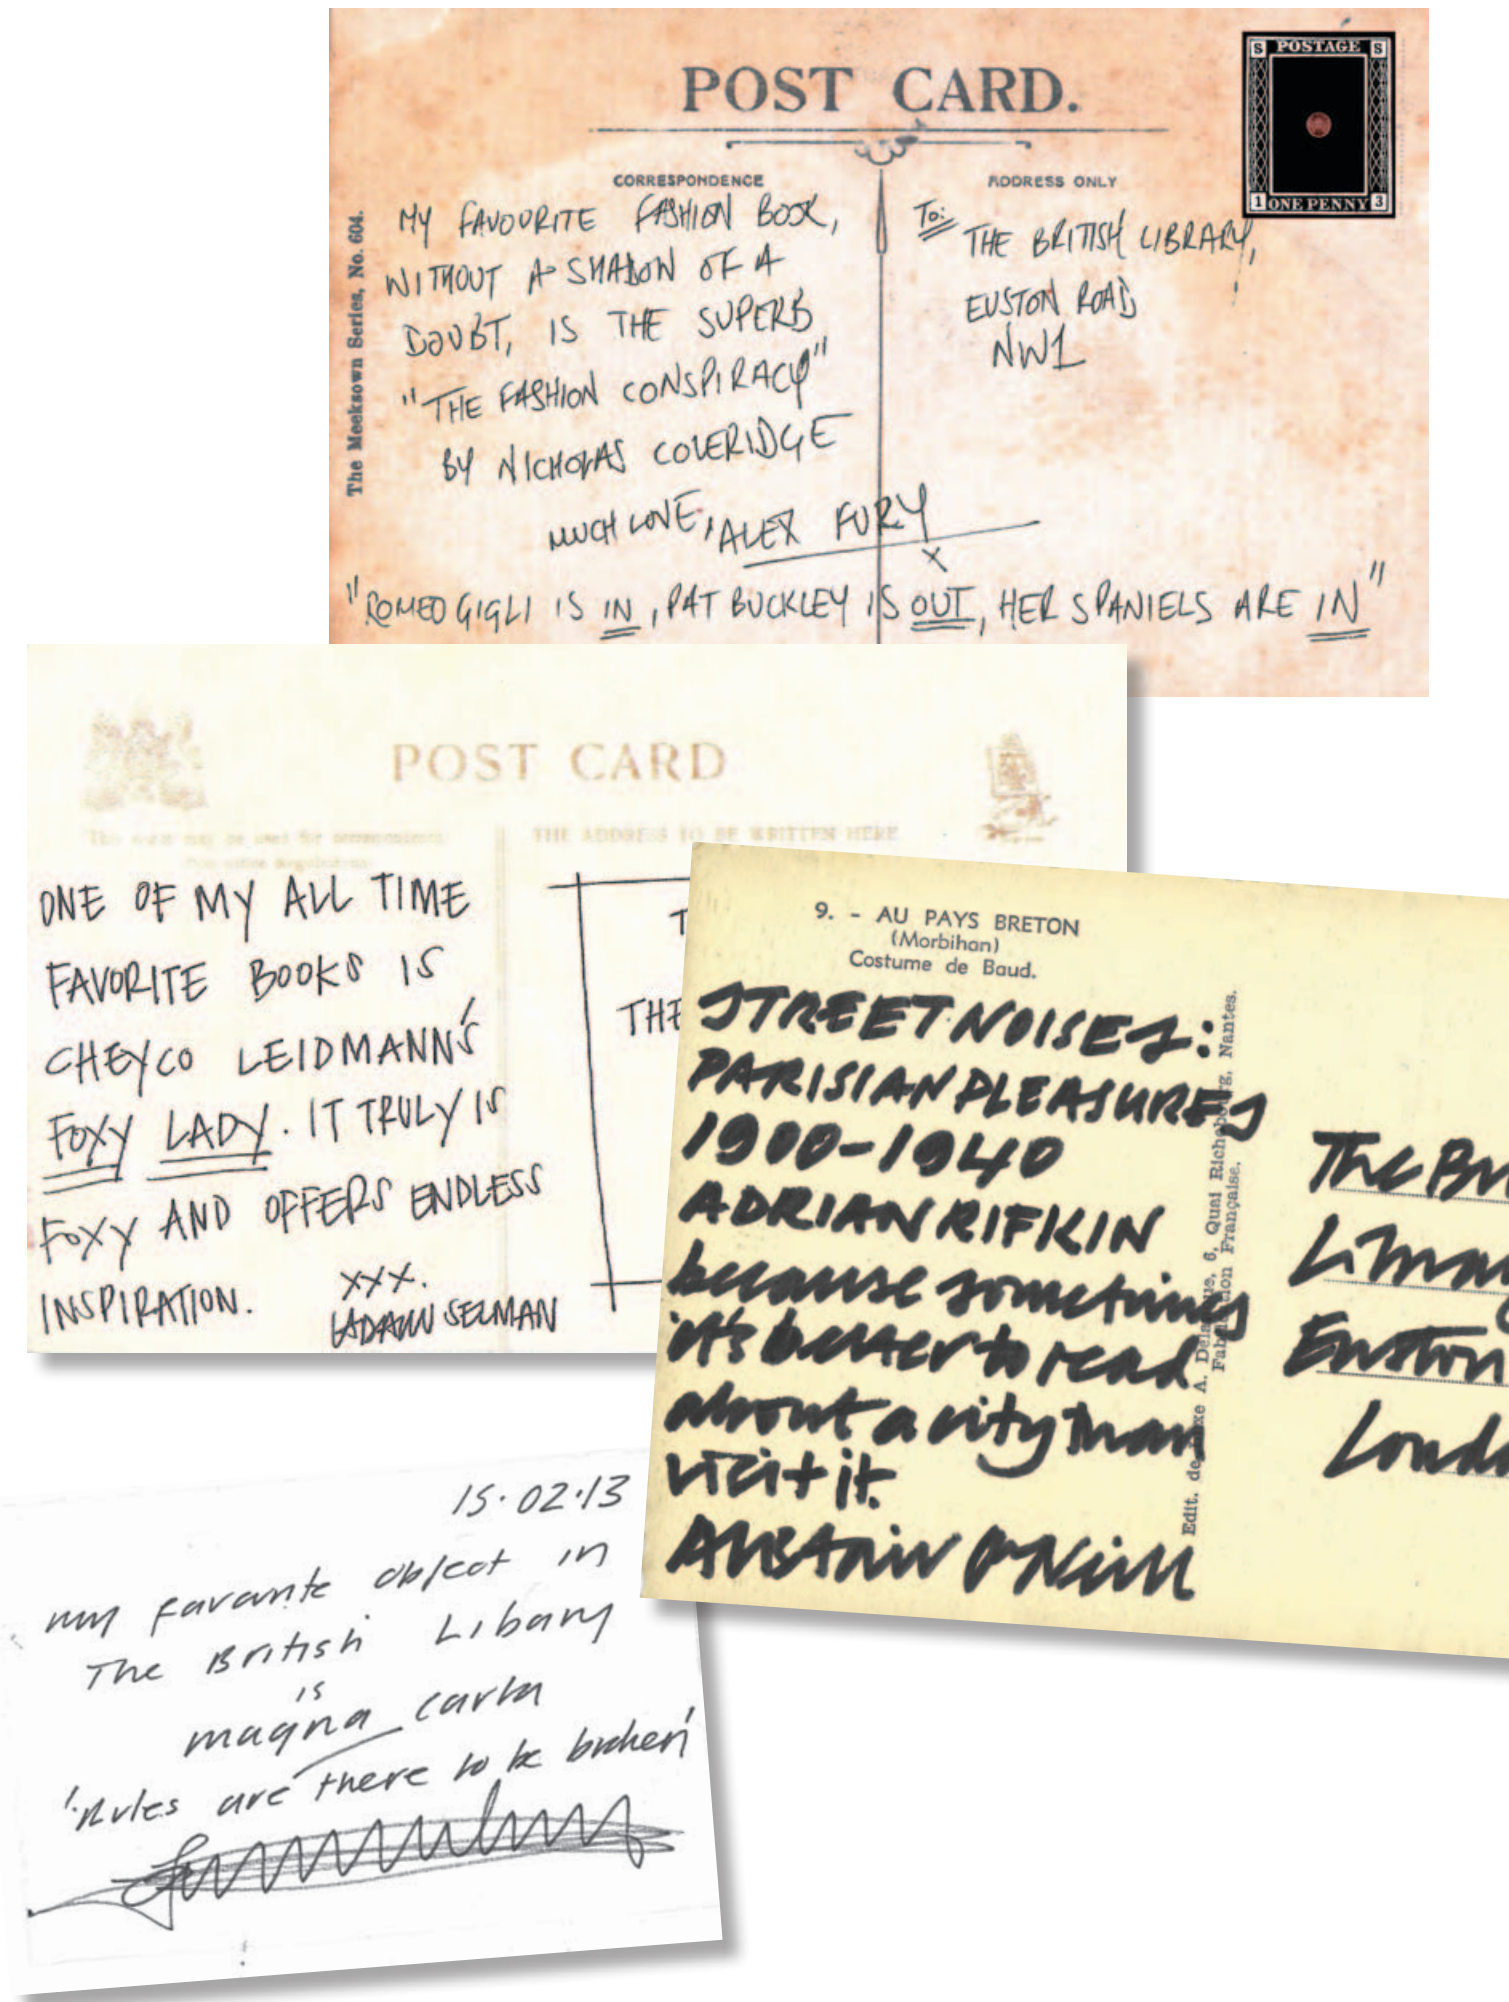 POST CARD.
S POSTAGE S
1 ONE PENNY 3
CORRESPONDENCE
ADDRESS ONLY
The Meeksown Series, No. 604.
MY FAVOURITE FASHION BOOK,
WITHOUT A SHADOW OF A
DOUBT, IS THE SUPERB
"THE FASHION CONSPIRACY"
BY NICHOLAS COLERIDGE
MUCH LOVE, ALEX FURY
X
"ROMEO GIGLI IS IN, PAT BUCKLEY IS OUT, HER SPANIELS ARE IN"
To:
THE BRITISH LIBRARY,
EUSTON ROAD
NW1
POST CARD
THE ADDRESS TO BE WRITTEN HERE
ONE OF MY ALL TIME
FAVORITE BOOKS IS
CHEYCO LEIDMANN'S
FOXY LADY. IT TRULY IS
FOXY AND OFFERS ENDLESS
INSPIRATION.
XXX.
ADAM SELMAN
T
THE
9. - AU PAYS BRETON
(Morbihan)
Costume de Baud.
STREET NOISES:
PARISIAN PLEASURES
1900-1940
ADRIAN RIFKIN
because sometimes
it's better to read
about a city than
visit it.
Alistair O'Neill
Edit. de A.
6, Quai Richebourg, Nantes.
Française.
The Br
Library
Euston
Lond
15.02.13
my favourite object in
The British Libary
is
magna carta
'Rules are there to be broken'